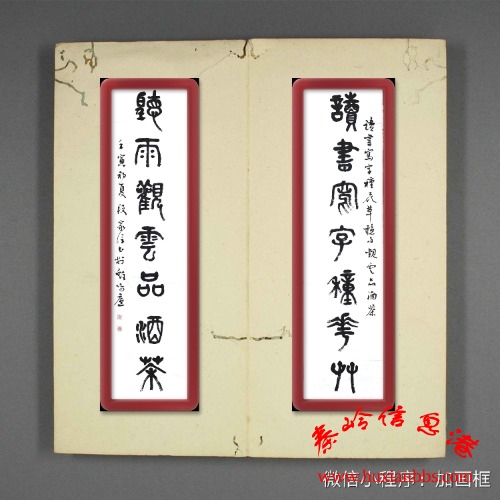 讀書寫字種花艸
读书写字種花草聽雨觀雲品酒茶
聽雨觀雲品酒茶
壬寅初夏
秦岭信息港
www.huxianbbs.com
微信小程序：加画框